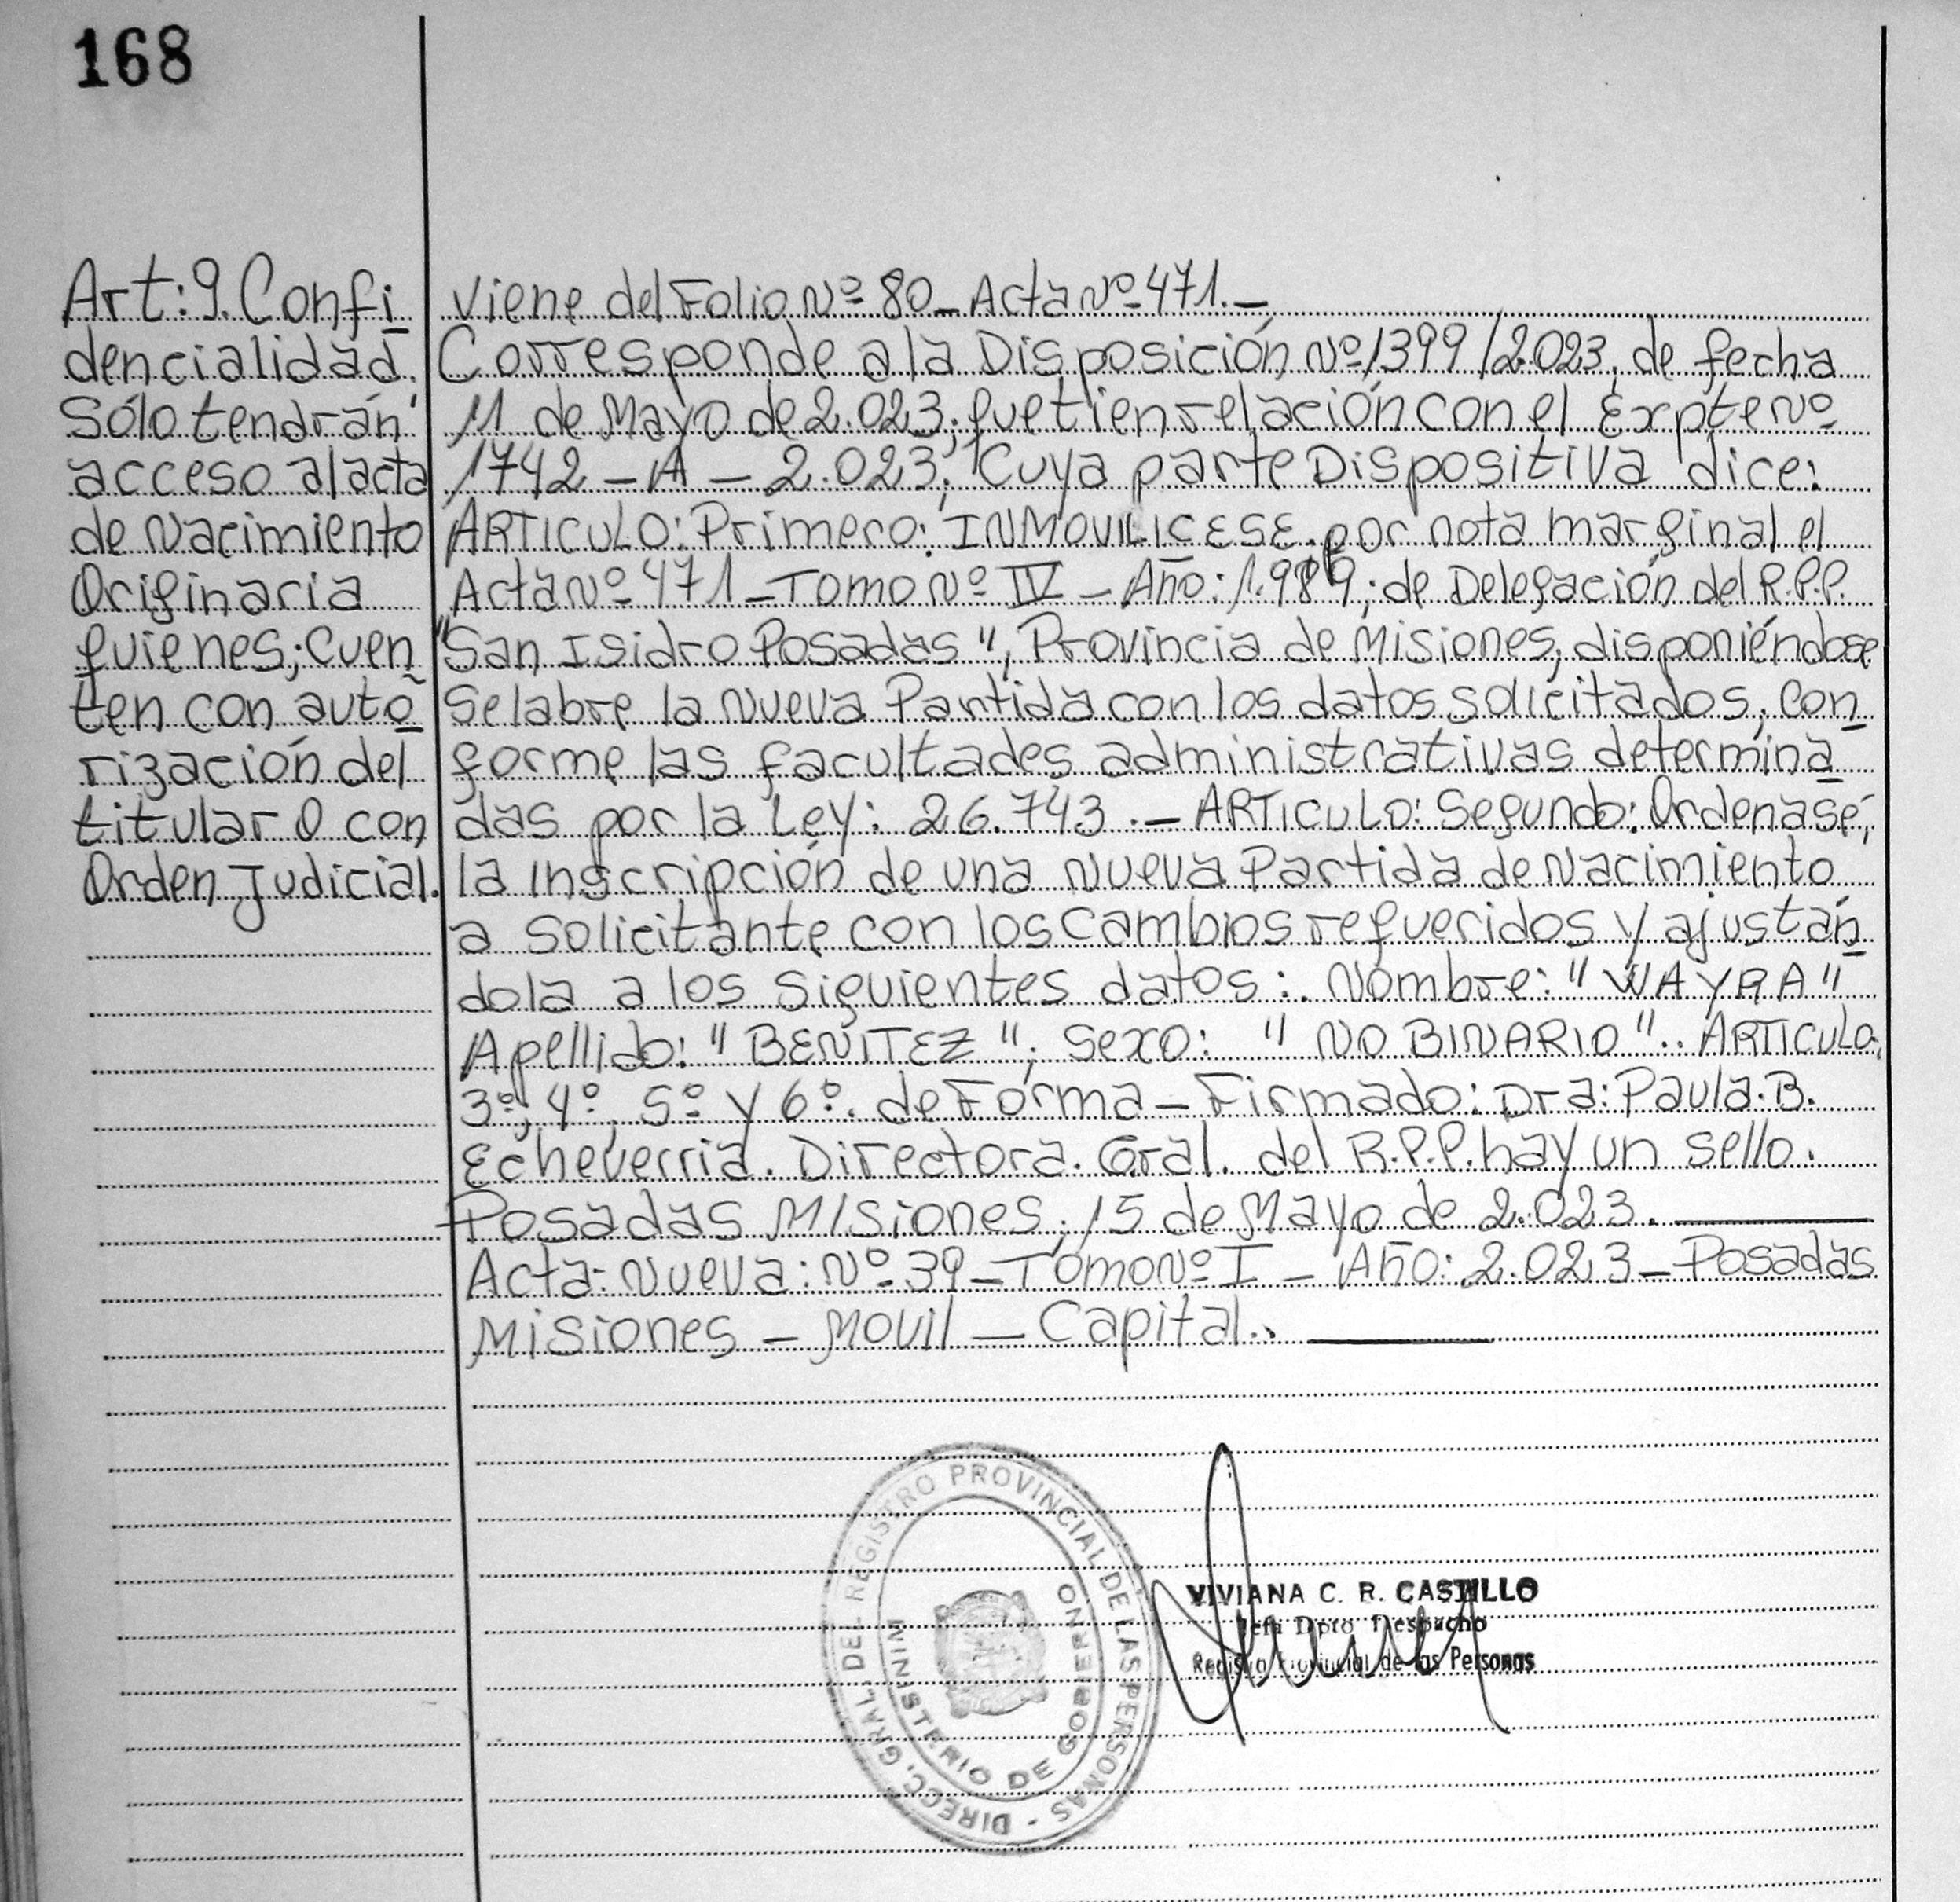 168
Art: 9. Confi
dencialidad.
Sólo tendrán
acceso al acta
de Nacimiento
Originaria
quienes; cuen
ten con auto
rización del
titular o con
Orden Judicial.
Viene del Folio Nº 80 - Acta Nº 471. -
Corresponde a la Disposición Nº 1399/2.023, de fecha
11 de Mayo de 2.023; que tien relación con el Expte Nº
1742 - A - 2.023; Cuya parte Dispositiva dice:
ARTICULO: Primero: INMOVILICESE. por nota marginal el
Acta Nº 471 - Tomo Nº IV - Año: 1.989; de Delegación del R.P.P.
"San Isidro Posadas", Provincia de Misiones, disponiéndose
Se labre la Nueva Partida con los datos solicitados, con
forme las facultades administrativas determina
das por la Ley: 26.743 .- ARTICULO: Segundo: Ordenase,
la Inscripción de una Nueva Partida de Nacimiento
a solicitante con los cambios requeridos y ajustán
dola a los siguientes datos:. Nombre: "WAYRA"
Apellido: "BENITEZ"; Sexo: "NO BINARIO".. ARTICULO.
3º, 4º, 5º y 6º. de Forma - Firmado: Dra: Paula. B.
Echeverria. Directora. Gral. del R.P.P. hay un sello.
Posadas Misiones, 15 de Mayo de 2.023.
Acta: Nueva: Nº 39 - Tomo Nº I - Año: 2.023 - Posadas
Misiones - Movil - Capital..
DIRECC. GRAL. DEL REGISTRO PROVINCIAL DE LAS PERSONAS -
MINISTERIO DE GOBIERNO
VIVIANA C. R. CASTILLO
Jefa Dpto Despacho
Registro Provincial de las Personas